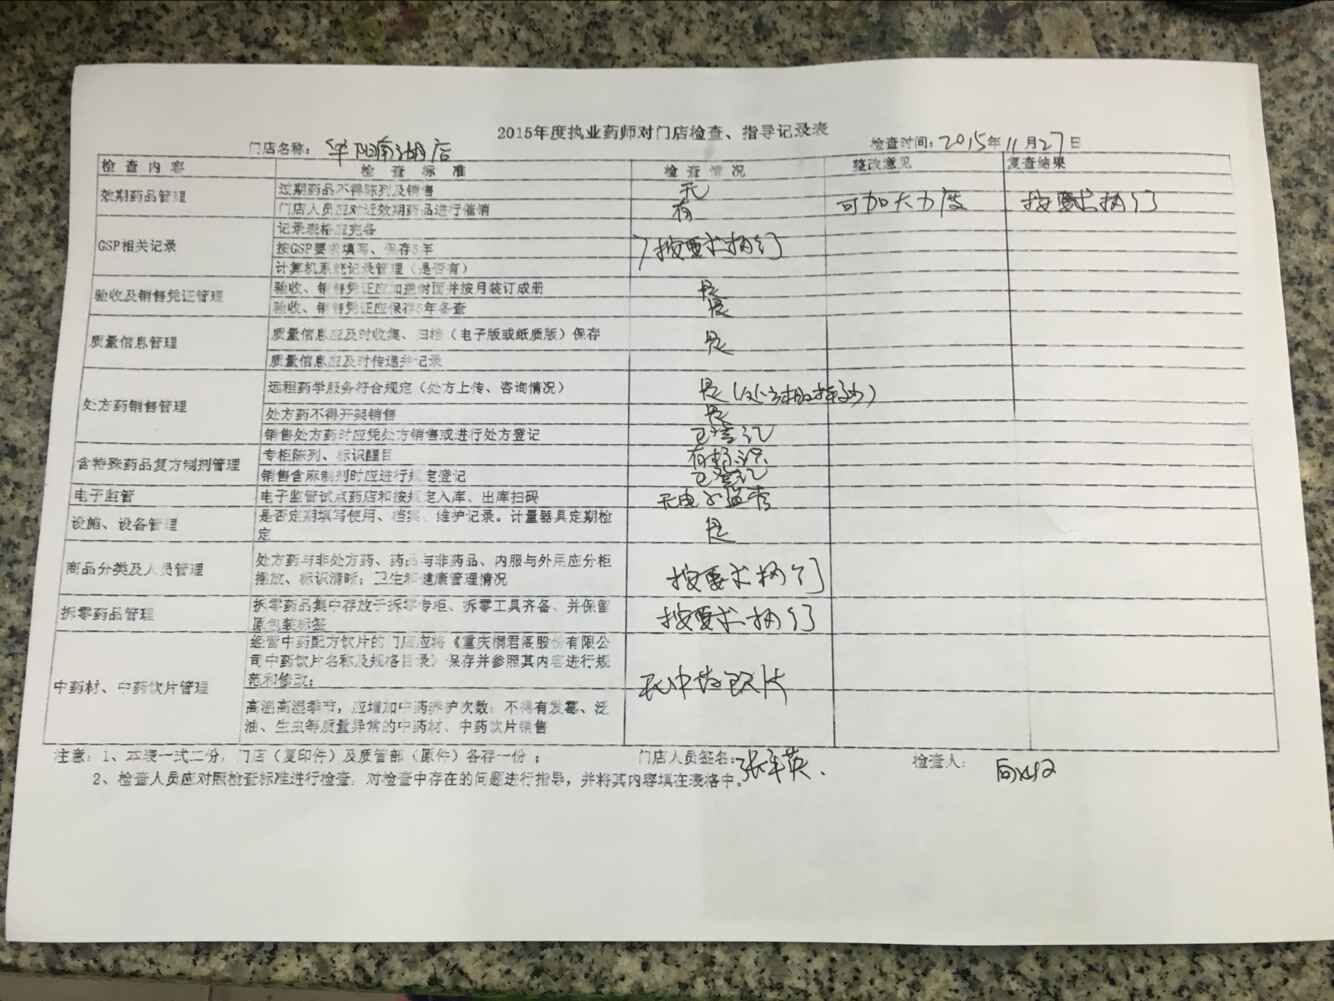 2015年度执业药师对门店检查、指导记录表
门店名称： 华阳南湖店 检查时间：2015年11月27日
检查内容 检查标准 检查情况 整改意见 复查结果
效期药品管理 过期药品不得陈列及销售 无
门店人员应对近效期药品进行催销 有 可加大力度 按要求执行
GSP相关记录 记录表格应完备
按GSP要求填写、保存5年 按要求执行
计算机系统记录管理（是否有）
验收及销售凭证管理 验收、销售凭证应加盖封面并按月装订成册 是
验收、销售凭证应保存5年备查 是
质量信息管理 质量信息应及时收集、归档（电子版或纸质版）保存 是
质量信息应及时传递并记录
处方药销售管理 远程药学服务符合规定（处方上传、咨询情况） 是
处方药不得开架销售 是
销售处方药时应凭处方销售或进行处方登记 已登记
含特殊药品复方制剂管理 专柜陈列、标识醒目 有标识
销售含麻制剂时应进行规定登记 已登记
电子监管 电子监管试点药店和按规定入库、出库扫码 无电子监管
设施、设备管理 是否定期填写使用、档案、维护记录。计量器具定期检
定 是
商品分类及人员管理 处方药与非处方药、药品与非药品、内服与外用应分柜
摆放、标识清晰；卫生和健康管理情况 按要求执行
拆零药品管理 拆零药品集中存放于拆零专柜、拆零工具齐备、并保留
原包装标签 按要求执行
中药材、中药饮片管理 经营中药配方饮片的门店应将《重庆桐君阁股份有限公
司中药饮片名称及规格目录》保存并参照其内容进行规
范和修改； 无中药饮片
高温高湿季节，应增加中药养护次数；不得有发霉、泛
油、生虫等质量异常的中药材、中药饮片销售
注意：1、本表一式二份，门店（复印件）及质管部（原件）各存一份； 门店人员签名： 检查人：
2、检查人员应对照检查标准进行检查；对检查中存在的问题进行指导，并将其内容填在表格中。